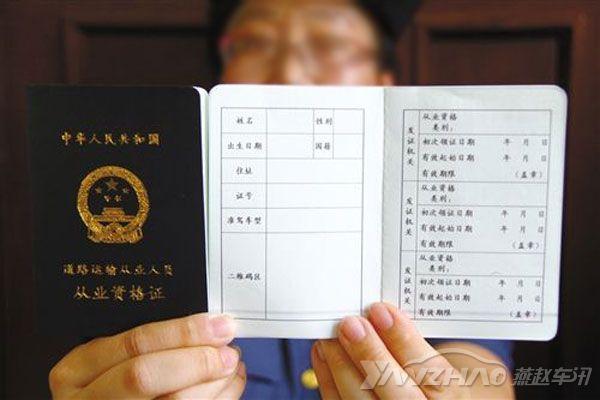 中华人民共和国
道路运输从业人员
从业资格证
姓名 性别
出生日期 国籍
住址
证号
准驾车型
二维码区
发证机关
从业资格
类别：
初次领证日期 年 月 日
有效起始日期 年 月 日
有效期限 （盖章）
发证机关
从业资格
类别：
初次领证日期 年 月 日
有效起始日期 年 月 日
有效期限 （盖章）
发证机关
从业资格
类别：
初次领证日期 年 月 日
有效起始日期 年 月 日
有效期限 （盖章）
YANZHAO 燕赵车讯